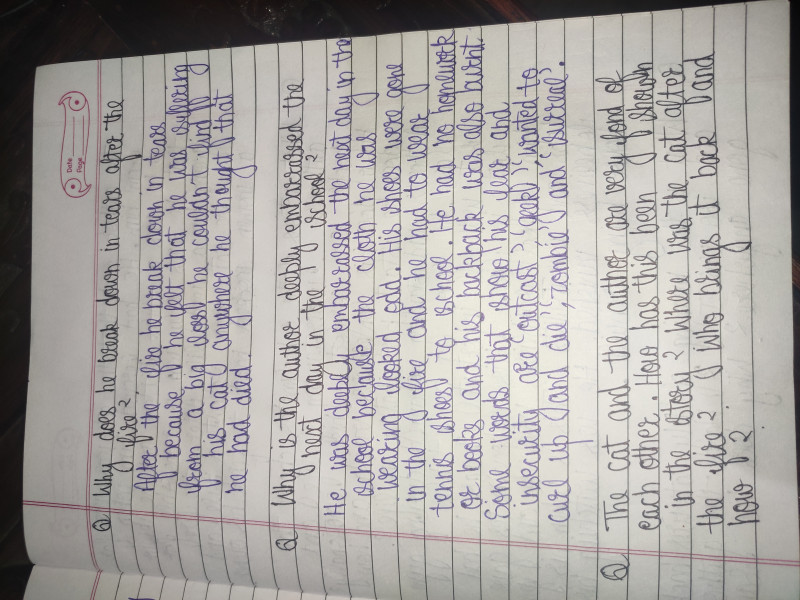 Date
Page
Q Why does he break down in tears after the
fire?
After the fire he break down in tears
because he felt that he was suffering
from a big loss he couldn't find
his cat anywhere he thought that
he had died.
Q Why is the author deeply embarrassed the
next day in the school?
He was deeply embarrassed the next day in the
school because the cloth he was
wearing looked odd. His shoes were gone
in the fire and he had to wear
tennis shoes to school. He had no homework
or books and his backpack was also burnt.
Some words that show his fear and
insecurity are "outcast" "geek" "wanted to
curl up and die", "zombie" and "surreal".
Q The cat and the author are very fond of
each other. How has this been shown
in the story? Where was the cat after
the fire? Who brings it back and
how?